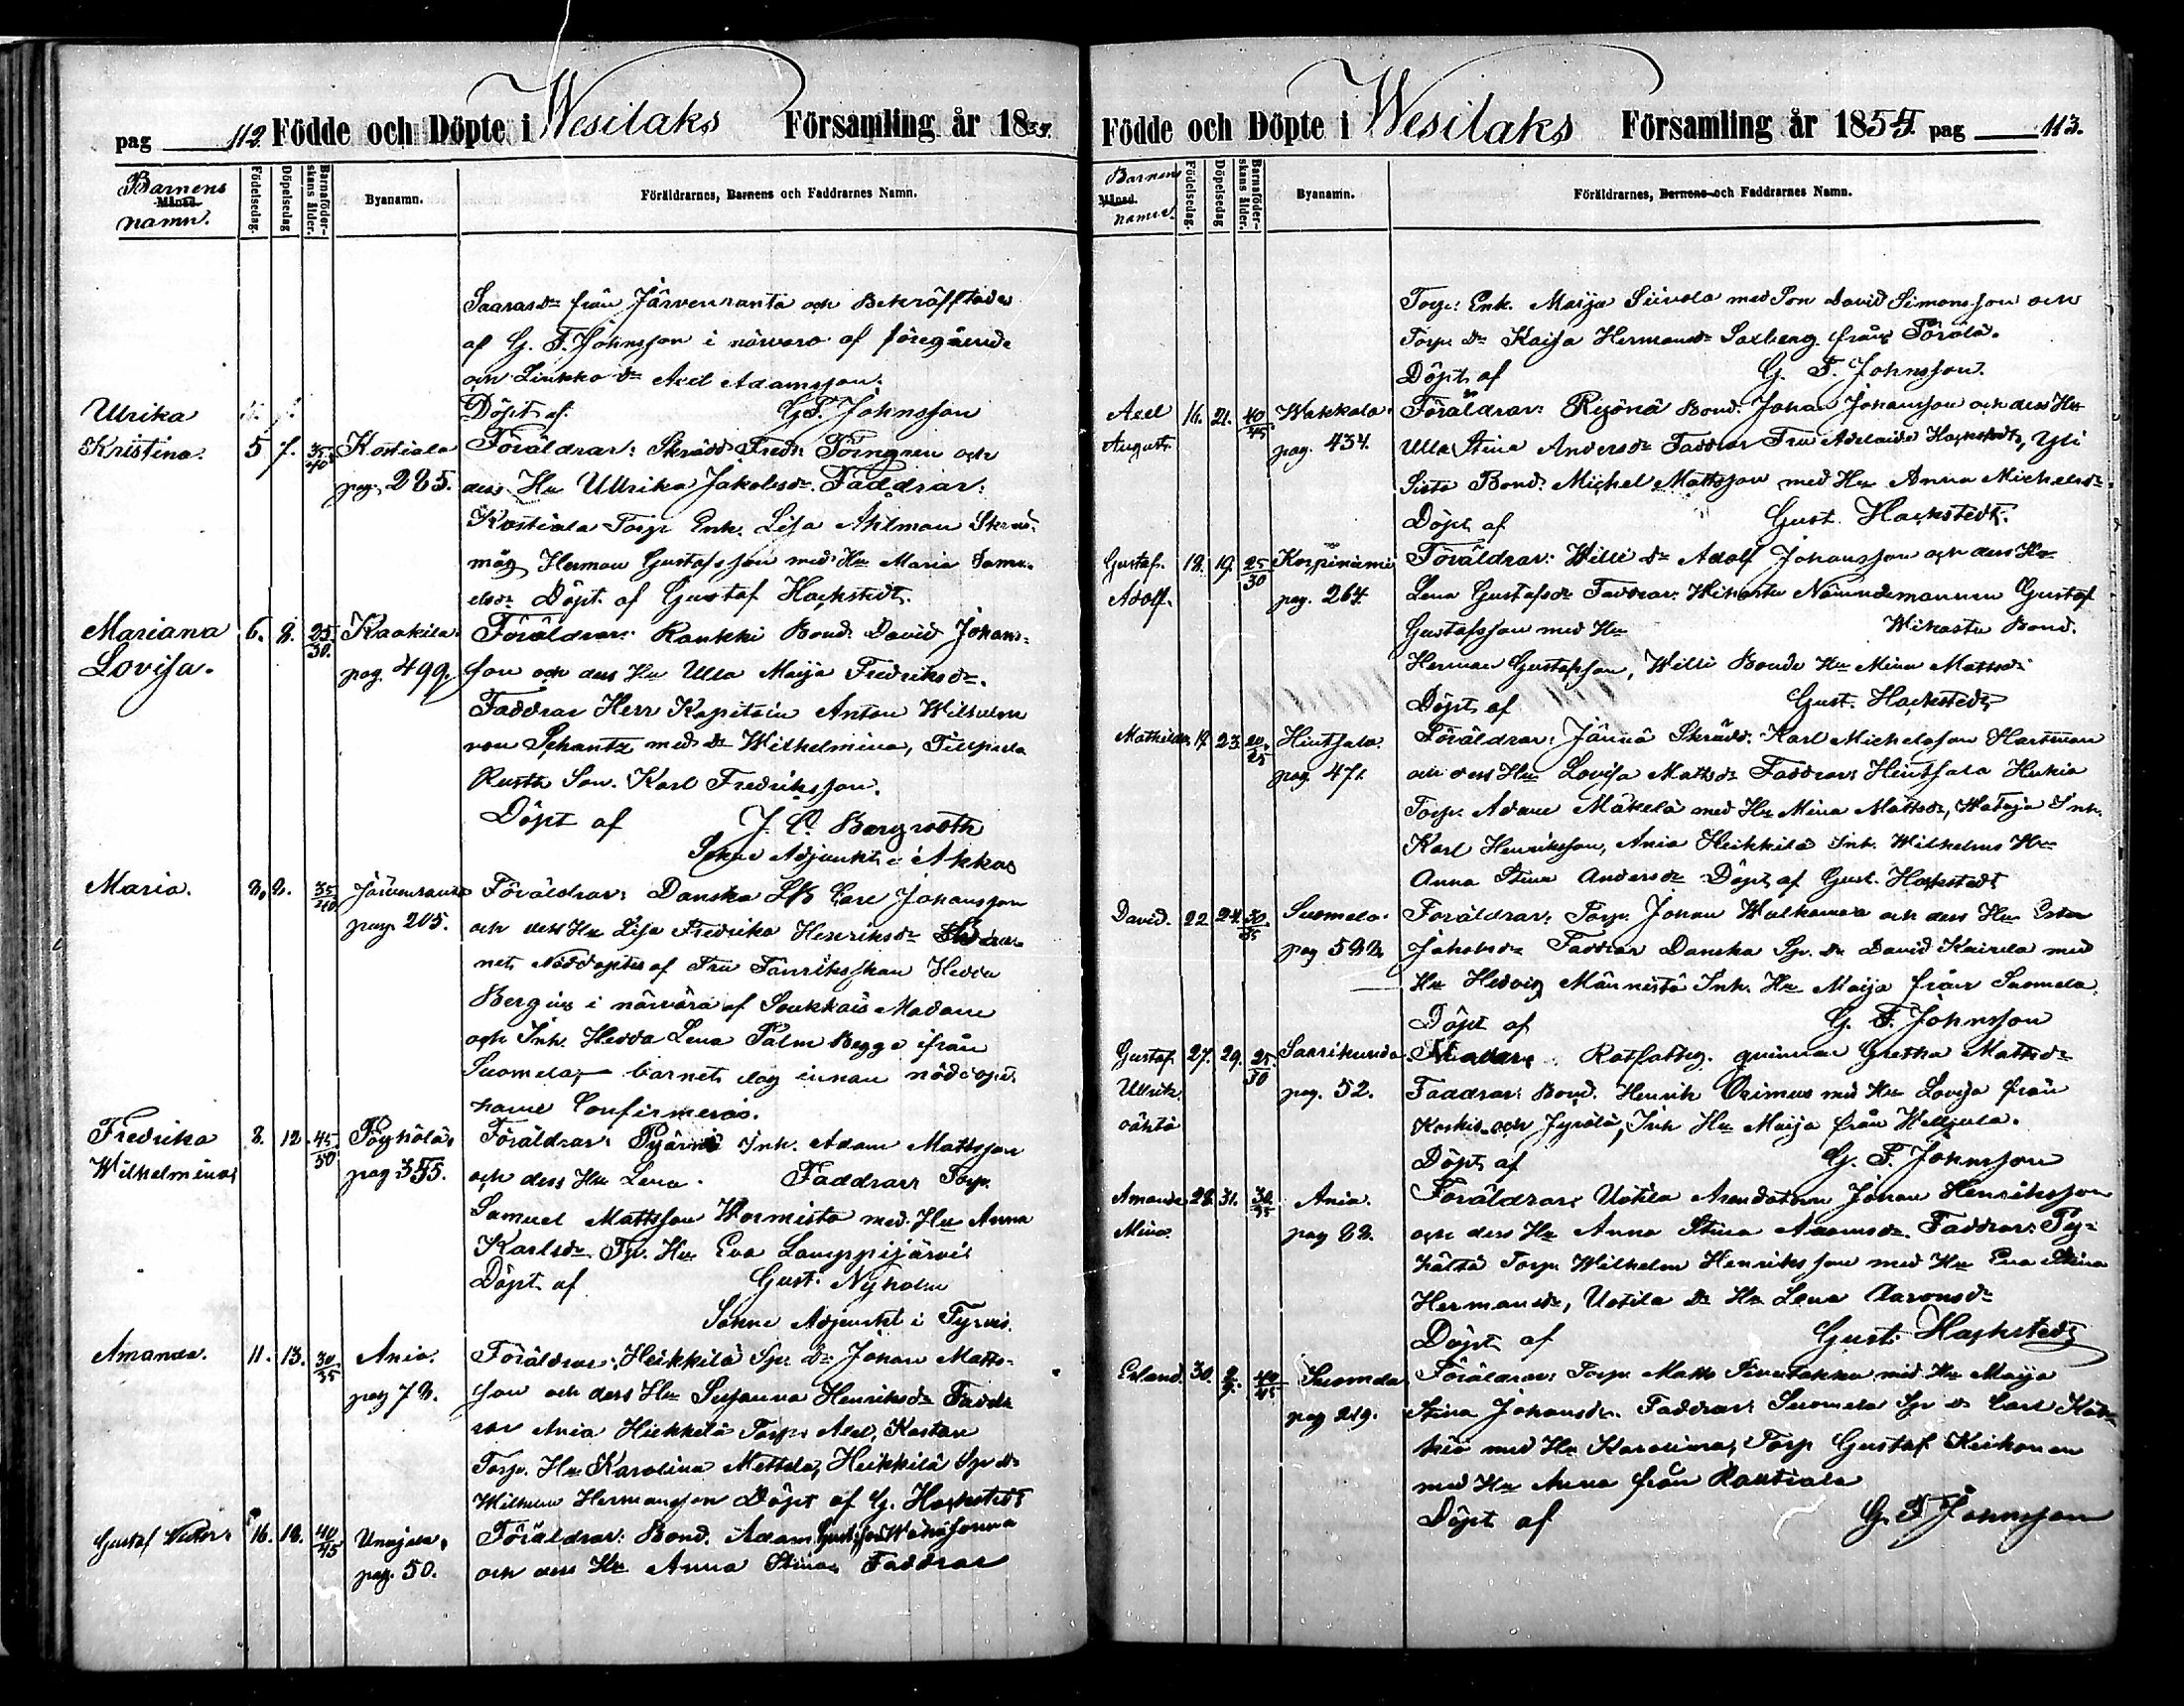 pag 112. Födde och Döpte i Wesilaks Församling år 18
Barnens Månad namn. Födelsedag. Döpelsedag Barnaföderskans ålder. Byanamn. Föräldrarnes, Barnens och Faddrarnes Namn.
från Järvenranta och Bekräfftades
af G. F. Johnsson i närvaro af föregående
och Axel Adamsson.
Ulrika Döpt af G. F. Johnsson
Kristina. 5 7. 35/40 Kostiala Föräldrar: Skrädd. Fredr. Törngren och
pag. 285. dess Hu Ullrika Jakobsdr. Faddrar:
Kostiala Torp. Enk. Lisa Ahlman
måg Herman Gustafsson med Hu Maria Samu-
elsdr Döpt af Gustaf Hackstedt.
Mariana 6. 8. 25/30. Kaakila. Föräldrar: Raukki Bond. David Johans-
Lovisa. pag. 499. son och dess Hu Ulla Maija Fredriksdr.
Faddrar Herr Kapitain Anton Wilhelm
von Schantz med dr Wilhelmina,
Rusth. Son. Karl Fredriksson.
Döpt af Bergroth
Sokne Adjunkt i Akkas
Maria. 8. 35/40 Järvenranta Föräldrar: Danska Carl Johansson
pag. 205. och dess Hu Lisa Fredrika Henriksdr
net Nöddöptes af Fru Fänrikskan Hedda
Bergius i närvara af Madam
och Inh. Hedda Lena Palm Begge ifrån
Suomela, barnet dog innan nöddopet
hane Confirmeras.
Fredrika 8. 12. 45/50 Pöyhölä. Föräldrar: Inh. Adam Mattsson
Wilhelmina pag 355. och dess Hu Lena. Faddrar Torp.
Samuel Mattsson Wormisto med Hu Anna
Karlsdr. Hu Eva Lamppijärvi
Döpt af Gust. Nyholm
Sokne Adjunkt i Tyrvis.
Amanda. 11. 13. 30/35 Ania. Föräldrar: Heikkilä Johan Matts-
pag 78. son och dess Hu Susanna Henriksdr Fadd-
rar Ania Heikkilä Torp. Axel,
Torp. Hu Karolina Mettälä, Heikkilä
Wilhelm Hermansson Döpt af G. Hackstedt
Gustaf Victor. 16. 18. 40/45 Föräldrar: Bond. Adam
pag. 50. och dess Hu Anna Stina, Faddrar
Födde och Döpte i Wesilaks Församling år 1854. pag 113.
Barnens Månad namn. Födelsedag. Döpelsedag Barnaföderskans ålder. Byanamn. Föräldrarnes, Barnens och Faddrarnes Namn.
Torp. Enk. Maija Siivola med Son David Simonsson och
Torp. dr Kaisa Hermansdr Saxberg från
Döpt af G. F. Johnsson.
Axel 16. 21. 40/45 Wakkala. Föräldrar: Bond. Johan Johansson och dess Hu
August pag. 434. Ulla Stina Andersdr Faddrar Fru Adelaide Hackstedt, Yli
Sista Bond. Michel Mattsson med Hu Anna Michelsdr
Döpt af Gust. Hackstedt.
Gustaf 18. 19. 25/30 Korpiniemi Föräldrar: Willi dr Adolf Johansson och dess Hu
Adolf. pag. 264. Lena Gustafsdr Faddrar: Nämndemannen Gustaf
Gustafsson med Hu Bond.
Herman Gustafsson, Willi Bonde Hu Mina Mattsdr
Döpt af Gust. Hackstedt
Mathilda 17. 23. 20/25 Hintsala. Föräldrar: Jännä Skrädd. Karl Michelsson Hartman
pag. 471. och dess Hu Lovisa Mattsdr Faddrar: Hintsala
Torp. Adam Mäkelä med Hu Mina Mattsdr, Inh.
Karl Henriksson, Ania Heikkilä Inh. Wilhelms Hu
Anna Stina Andersdr Döpt af Gust. Hackstedt
David. 22. 24. 30/35 Suomela. Föräldrar: Torp. Johan och dess Hu
pag 582. Jakobsdr Faddrar Danska David med
Hu Hedvig Männistö Inh. Hu Maija från Suomela.
Döpt af G. F. Johnsson
Gustaf 27. 29. 25/30 Saarikunda qvinnan Gretha Mattsdr
Ullrik. pag. 52. Faddrar: Bond. Henrik med Hu Lovisa från
oäkta och Jyrölä, Inh Hu Maija från
Döpt af G. F. Johnson
Amanda 28. 31. 30/35 Ania. Föräldrar: Uotila Johan Henriksson
Mina. pag 88. och dess Hu Anna Stina Adamsdr. Faddrar:
Torp. Wilhelm Henriksson med Hu Eva Stina
Hermansdr, Uotila dr Hu Lena Aaronsdr
Döpt af Gust. Hackstedt
Erland. 30. 40/45 Suomela Föräldrar: Torp. Matts med Hu Maija
pag 219. Stina Johansdr. Faddrar: Suomela Carl
med Hu Karolina, Torp Gustaf Keikonen
med Hu Anna från Rautiala
Döpt af G. F Johnsson